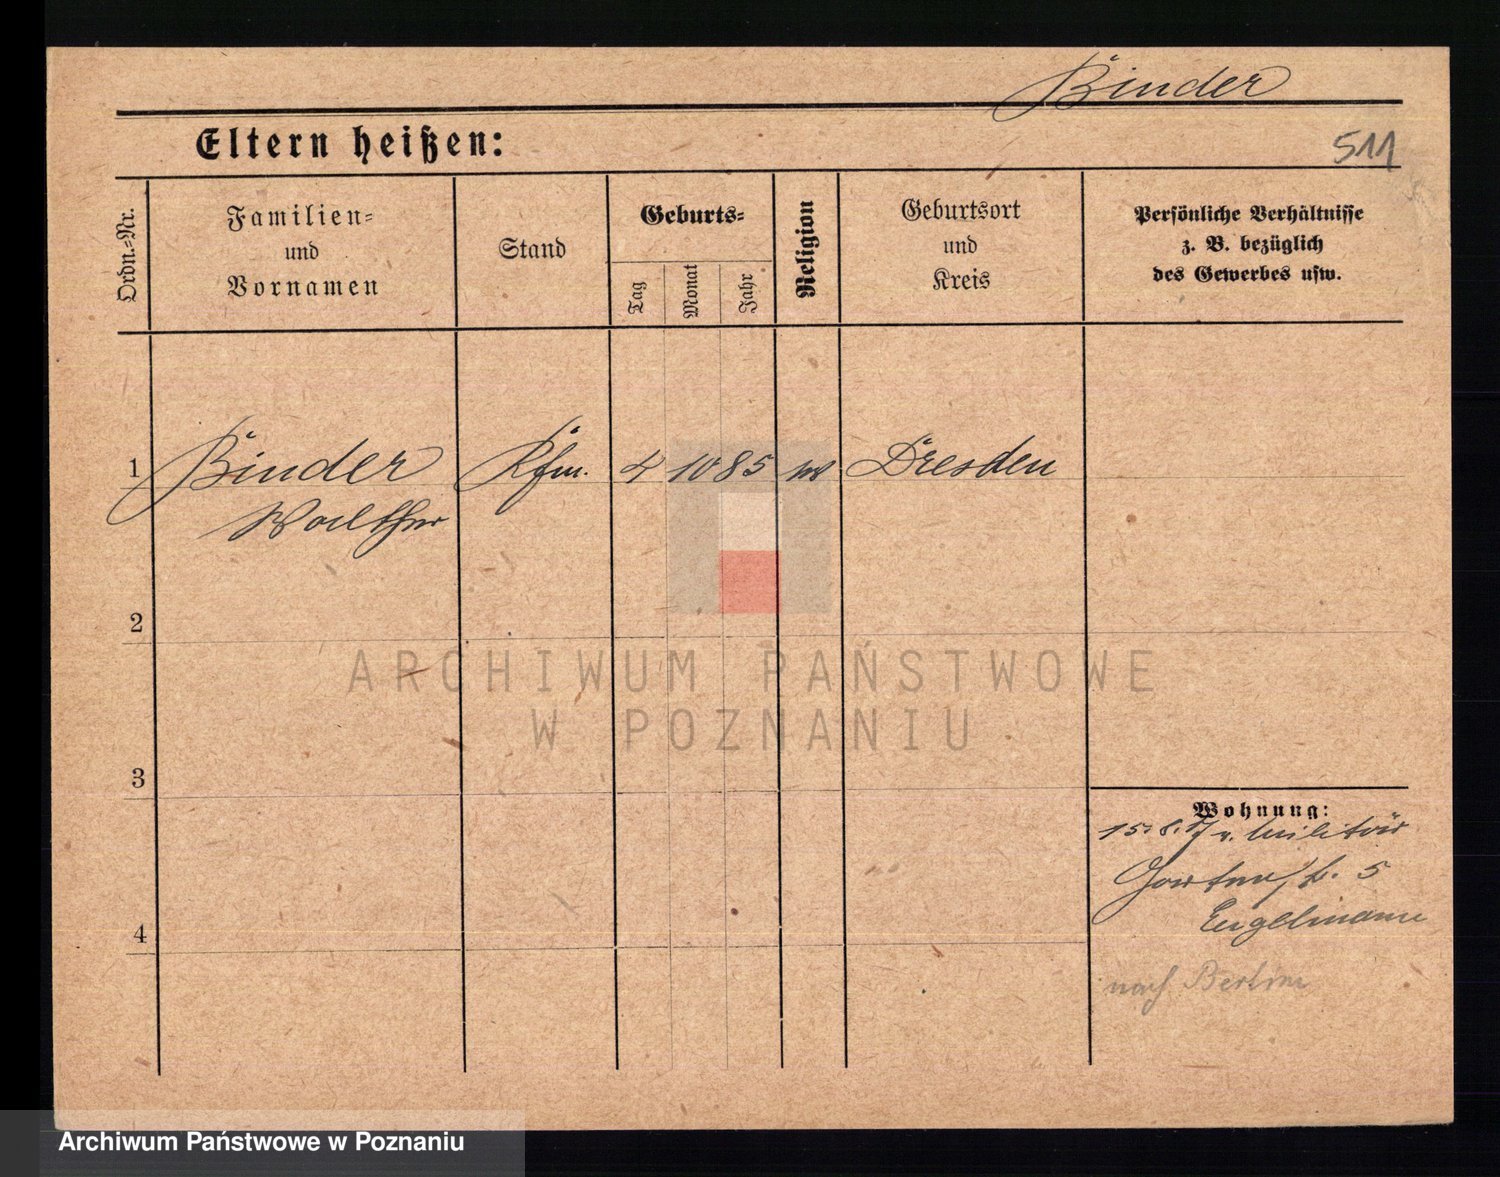 Binder
Eltern heißen:
511
Ordn.=Nr.
Familien=
und
Vornamen
Stand
Geburts=
Tag
Monat
Jahr
Religion
Geburtsort
und
Kreis
Persönliche Verhältnisse
z. B. bezüglich
des Gewerbes usw.
1
Binder Kfm. 4 10 85 Dresden
Walther
2
3
4
Wohnung:
15.8.17 v. Militär
Gartenstr. 5
Engelmann
nach Berlin
ARCHIWUM PAŃSTWOWE
W POZNANIU
Archiwum Państwowe w Poznaniu